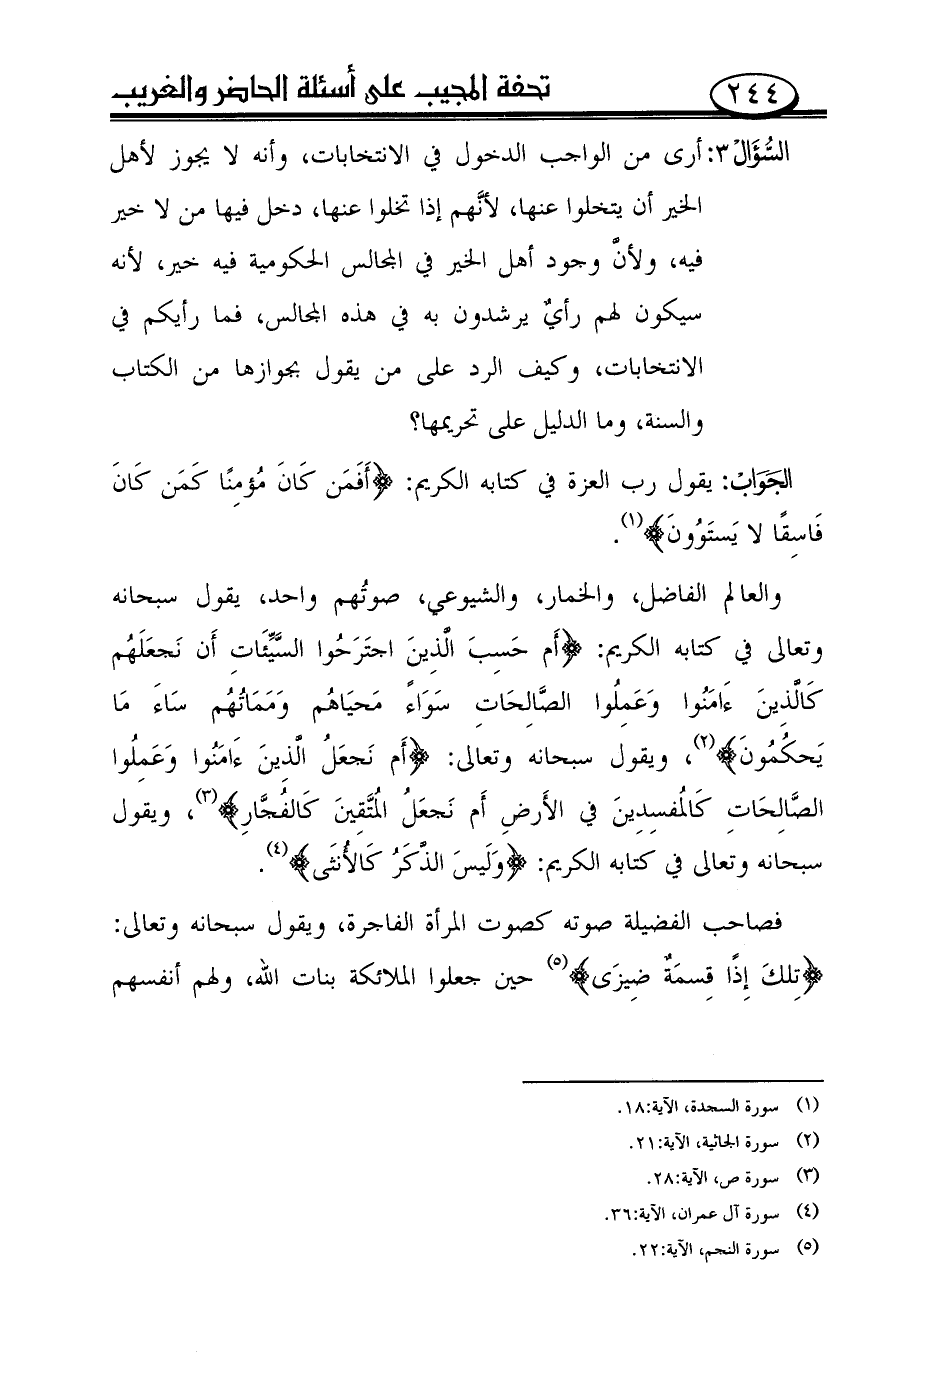 ٢٤٤
تحفة المجيب على أسئلة الحاضر والغريب
السُّؤَالُ ٣: أرى من الواجب الدخول في الانتخابات، وأنه لا يجوز لأهل
الخير أن يتخلوا عنها، لأنَّهم إذا تخلوا عنها، دخل فيها من لا خير
فيه، ولأنَّ وجود أهل الخير في المجالس الحكومية فيه خير، لأنه
سيكون لهم رأيٌ يرشدون به في هذه المجالس، فما رأيكم في
الانتخابات، وكيف الرد على من يقول بجوازها من الكتاب
والسنة، وما الدليل على تحريمها؟
الجَوَابُ: يقول رب العزة في كتابه الكريم: ﴿أَفَمَن كَانَ مُؤمِنًا كَمَن كَانَ
فَاسِقًا لا يَستَوُونَ﴾(١).
والعالم الفاضل، والخمار، والشيوعي، صوتُهم واحد، يقول سبحانه
وتعالى في كتابه الكريم: ﴿أَم حَسِبَ الَّذِينَ اجتَرَحُوا السَّيِّئَاتِ أَن نَجعَلَهُم
كَالَّذِينَ ءَامَنُوا وَعَمِلُوا الصَّالِحَاتِ سَوَاءً مَحيَاهُم وَمَمَاتُهُم سَاءَ مَا
يَحكُمُونَ﴾(٢)، ويقول سبحانه وتعالى: ﴿أَم نَجعَلُ الَّذِينَ ءَامَنُوا وَعَمِلُوا
الصَّالِحَاتِ كَالمُفسِدِينَ في الأَرضِ أَم نَجعَلُ المُتَّقِينَ كَالفُجَّارِ﴾(٣)، ويقول
سبحانه وتعالى في كتابه الكريم: ﴿وَلَيسَ الذَّكَرُ كَالأُنثَى﴾(٤).
فصاحب الفضيلة صوته كصوت المرأة الفاجرة، ويقول سبحانه وتعالى:
﴿تِلكَ إِذًا قِسمَةٌ ضِيزَى﴾(٥) حين جعلوا الملائكة بنات الله، ولهم أنفسهم
(١) سورة السجدة، الآية:١٨.
(٢) سورة الجاثية، الآية:٢١.
(٣) سورة ص، الآية:٢٨.
(٤) سورة آل عمران، الآية:٣٦.
(٥) سورة النجم، الآية:٢٢.